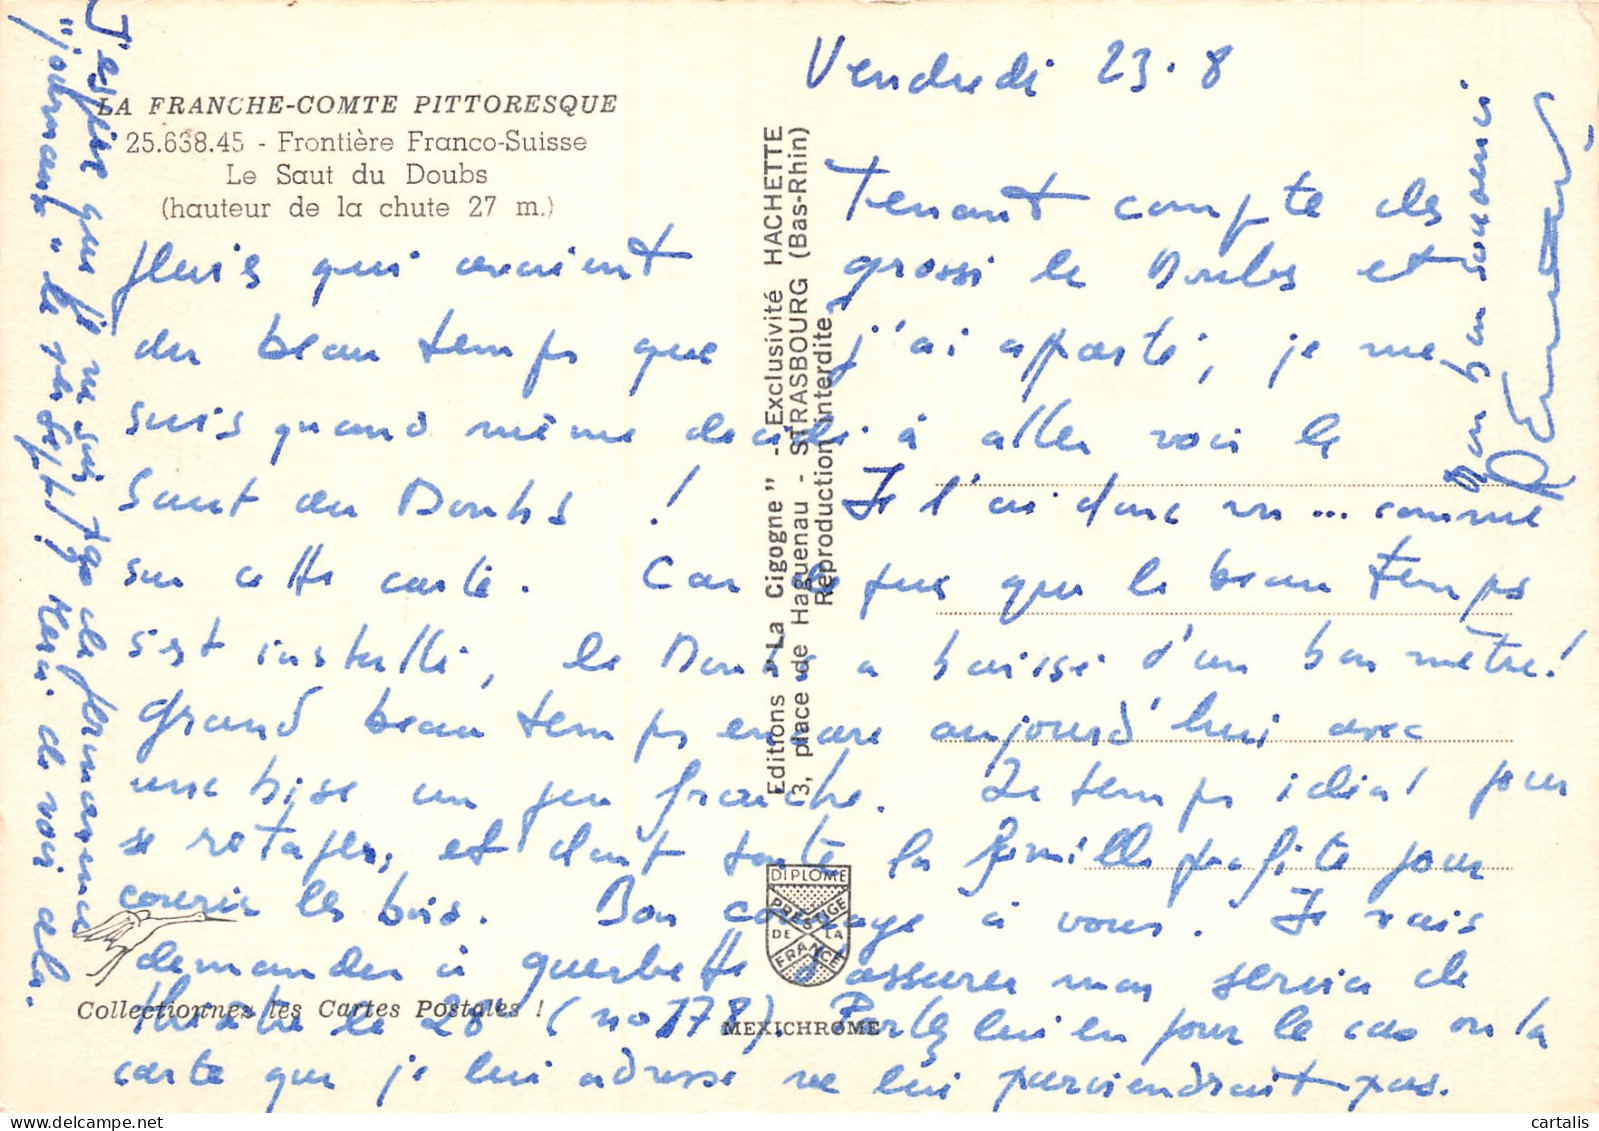 LA FRANCHE-COMTE PITTORESQUE
25.638.45 - Frontière Franco-Suisse
Le Saut du Doubs
(hauteur de la chute 27 m.)
Vendredi 23.8
Tenant compte des
pluies qui avaient grossi le Doubs et
du beau temps que j'ai apporté, je me
suis quand même décidé à aller voir le
Saut du Doubs ! Je l'ai donc vu ... comme
sur cette carte. Car que le beau temps
s'est installé, le Doubs a baissé d'un bon mètre!
Grand beau temps encore aujourd'hui avec
une bise un peu fraîche. Le temps idéal pour
se retaper, et dont toute la famille profite pour
courir les bois. Bon courage à vous. Je vais
demander à d'assurer mon service de
théâtre le 28 (no 178). Parlez lui en pour le cas où la
carte que je lui adresse ne lui parviendrait pas.
J'espère que je ne suis pas de permanence
"journaux" le Merci de voir cela.
Mon bon souvenir
Editions "La Cigogne" - Exclusivité HACHETTE
3, place de Haguenau - STRASBOURG (Bas-Rhin)
Reproduction interdite
DIPLOME
PRESTIGE
DE LA
FRANCE
Collectionnes les Cartes Postales !
MEXICHROME
cartalis